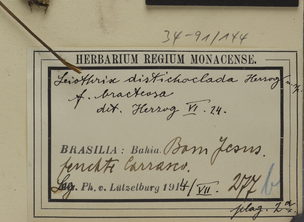 34-91/144
HERBARIUM REGIUM MONACENSE.
Leiothrix distichoclada Herzog
f. bracteosa
dit. Herzog VI. 24.
BRASILIA: Bahia. Bom Jesus.
feuchte Carrasco.
Leg. Ph. v. Lützelburg 1914/VII. 277 b
plag. 2